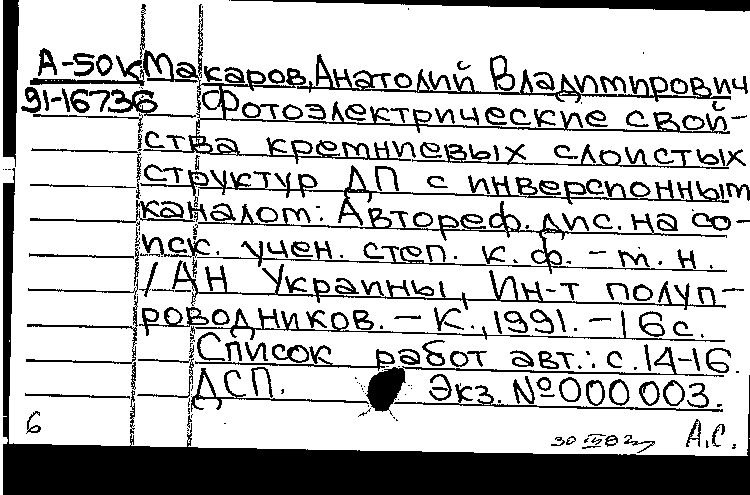 А-50к Макаров, Анатолий Владимирович
91-16736 Фотоэлектрические свой-
ства кремниевых слоистых
структур ДП с инверсионным
каналом: Автореф. дис. на со-
иск. учен. степ. к. ф. - м. н.
/ АН Украины, Ин-т полуп-
роводников. - К., 1991. - 16 с.
Список работ авт.: с. 14-16.
ДСП. Экз. № 000 003.
6 А.С.